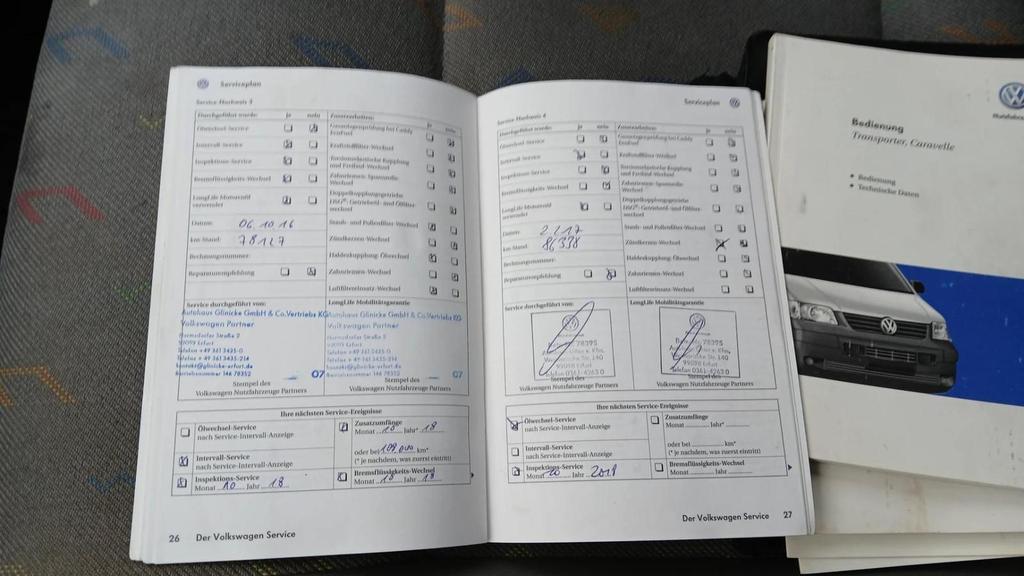 Serviceplan
Service-Nachweis 3
Durchgeführt wurde: ja nein
Ölwechsel-Service
Intervall-Service
Inspektions-Service
Bremsflüssigkeits-Wechsel
LongLife Motorenöl
verwendet
Datum: 06.10.16
km-Stand: 78127
Rechnungsnummer:
Reparaturempfehlung
Zusatzarbeiten: ja nein
Gasanlagenprüfung bei Caddy
EcoFuel
Kraftstofffilter-Wechsel
und Freilauf-Wechsel
Zahnriemen- Spannrolle-
Wechsel
Doppelkupplungsgetriebe
DSG®- Getriebeöl- und Ölfilter-
wechsel
Staub- und Pollenfilter-Wechsel
Zündkerzen-Wechsel
Haldexkupplung: Ölwechsel
Zahnriemen-Wechsel
Luftfiltereinsatz-Wechsel
Service durchgeführt von:
Autohaus Glinicke GmbH & Co.Vertriebs KG
Volkswagen Partner
Hermsdorfer Straße 2
99099 Erfurt
Telefon +49 361 3435-0
Telefax +49 361 3435-214
kontakt@glinicke-erfurt.de
Betriebsnummer 146 78352 07
Stempel des
Volkswagen Nutzfahrzeuge Partners
LongLife Mobilitätsgarantie
Autohaus Glinicke GmbH & Co.Vertriebs KG
Volkswagen Partner
Hermsdorfer Straße 2
99099 Erfurt
Telefon +49 361 3435-0
Telefax +49 361 3435-214
kontakt@glinicke-erfurt.de
Betriebsnummer 146 78352 07
Stempel des
Volkswagen Nutzfahrzeuge Partners
Ihre nächsten Service-Ereignisse
Ölwechsel-Service
nach Service-Intervall-Anzeige
Intervall-Service
nach Service-Intervall-Anzeige
Inspektions-Service
Monat 10 Jahr 18
Zusatzumfänge
Monat 10 Jahr* 18
oder bei km*
(* je nachdem, was zuerst eintritt)
Bremsflüssigkeits-Wechsel
Monat 10 Jahr 18
26 Der Volkswagen Service
Serviceplan
Service-Nachweis 4
Durchgeführt wurde: ja nein
Ölwechsel-Service
Intervall-Service
Inspektions-Service
Bremsflüssigkeits-Wechsel
LongLife Motorenöl
verwendet
Datum: 2.2.17
km-Stand: 86338
Rechnungsnummer:
Reparaturempfehlung
Zusatzarbeiten: ja nein
Gasanlagenprüfung bei Caddy
EcoFuel
Kraftstofffilter-Wechsel
und Freilauf-Wechsel
Zahnriemen- Spannrolle-
Wechsel
Doppelkupplungsgetriebe
DSG®- Getriebeöl- und Ölfilter-
wechsel
Staub- und Pollenfilter-Wechsel
Zündkerzen-Wechsel
Haldexkupplung: Ölwechsel
Zahnriemen-Wechsel
Luftfiltereinsatz-Wechsel
Service durchgeführt von:
78395
Stempel des
Volkswagen Nutzfahrzeuge Partners
LongLife Mobilitätsgarantie
78395
Stempel des
Volkswagen Nutzfahrzeuge Partners
Ihre nächsten Service-Ereignisse
Ölwechsel-Service
nach Service-Intervall-Anzeige
Intervall-Service
nach Service-Intervall-Anzeige
Inspektions-Service
Monat 10 Jahr 2018
Zusatzumfänge
Monat Jahr*
oder bei km*
(* je nachdem, was zuerst eintritt)
Bremsflüssigkeits-Wechsel
Monat Jahr
Der Volkswagen Service 27
Bedienung
Transporter, Caravelle
• Bedienung
• Technische Daten